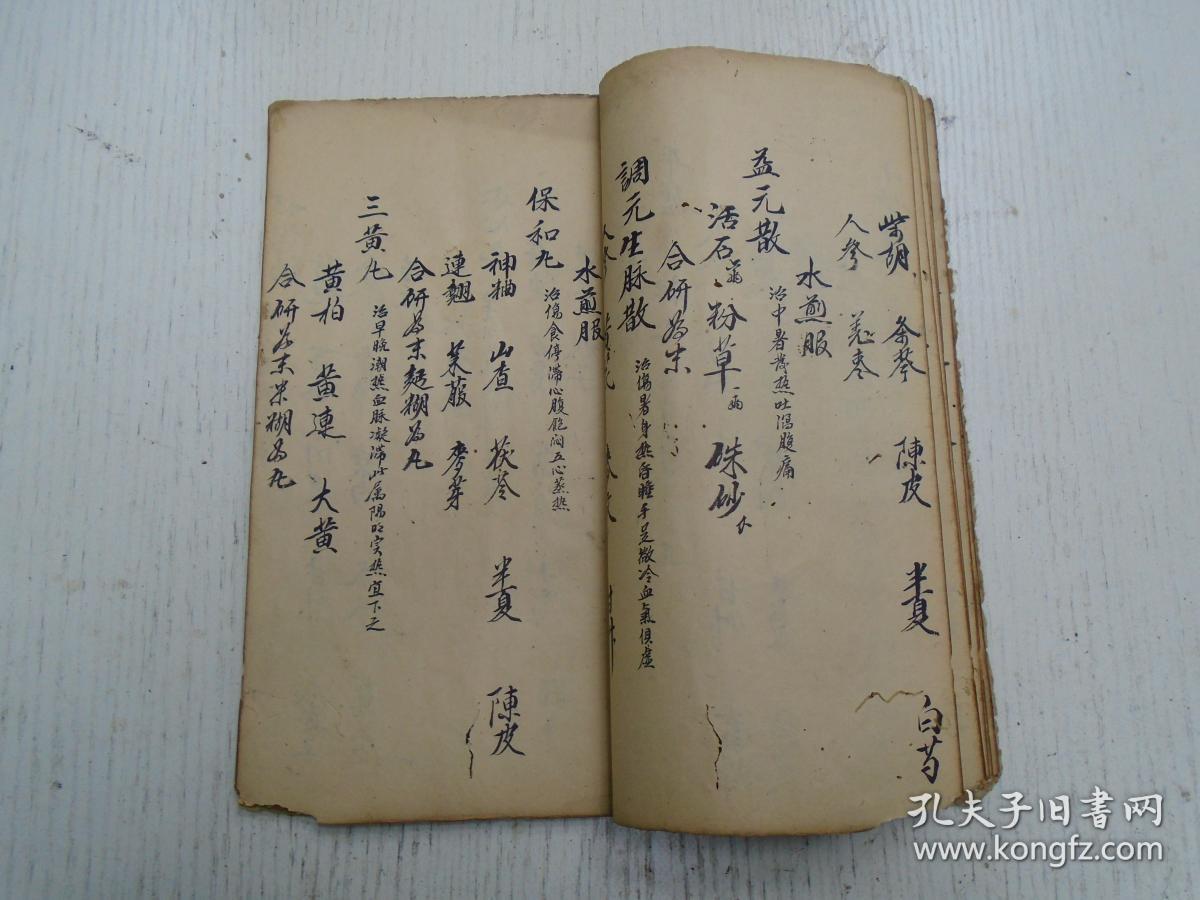 柴胡 条芩 陳皮 半夏 白芍
人參 羌麥
水煎服
益元散 治中暑發熱吐瀉腹痛
活石 粉草 硃砂
合研為末
調元生脉散 治傷暑身熱昏睡手足微冷血氣俱虛
水煎服
保和丸 治傷食停滯心腹飽悶五心蒸热
神粬 山查 茯苓 半夏 陳皮
連翹 萊菔 麥芽
合研為末麺糊為丸
三黄丸 治早晚潮热血脉凝滯此属陽明实热宜下之
黄柏 黄連 大黄
合研為末米糊為丸
孔夫子旧书网
www.kongfz.com